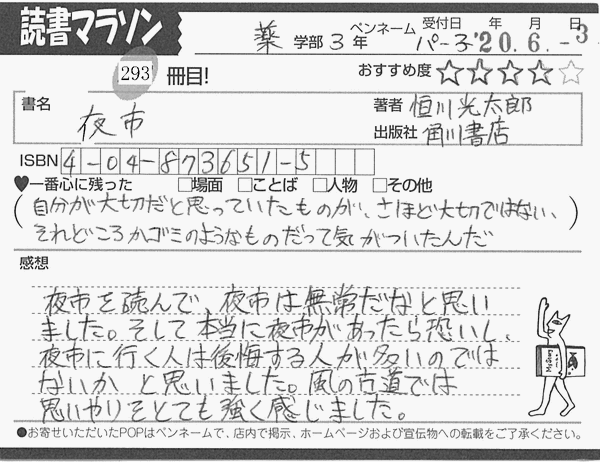 読書マラソン
薬 学部 3 年 ペンネーム パー子 受付日 '20 年 6 月 -3 日
293 冊目! おすすめ度 ★★★★☆
書名 夜市 著者 恒川光太郎
出版社 角川書店
ISBN 4-04-873651-5
♥一番心に残った □場面 □ことば □人物 □その他
(自分が大切だと思っていたものが、さほど大切ではない、
それどころかゴミのようなものだって気がついたんだ)
感想
夜市を読んで、夜市は無常だなと思い
ました。そして本当に夜市があったら恐いし、
夜市に行く人は後悔する人が多いのでは
ないか と思いました。風の古道では
思いやりをとても強く感じました。
●お寄せいただいたPOPはペンネームで、店内で掲示、ホームページおよび宣伝物への転載をご了承ください。